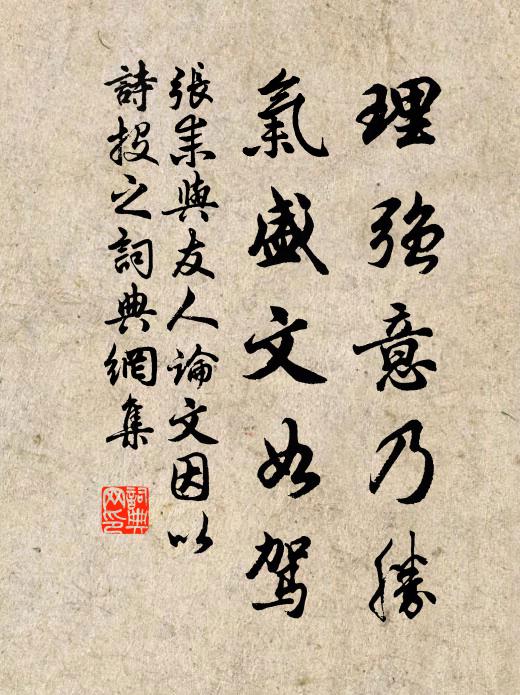 理強意乃勝
氣盛文如駕
張耒與友人論文因以
詩投之詞典網集
詞典
网印